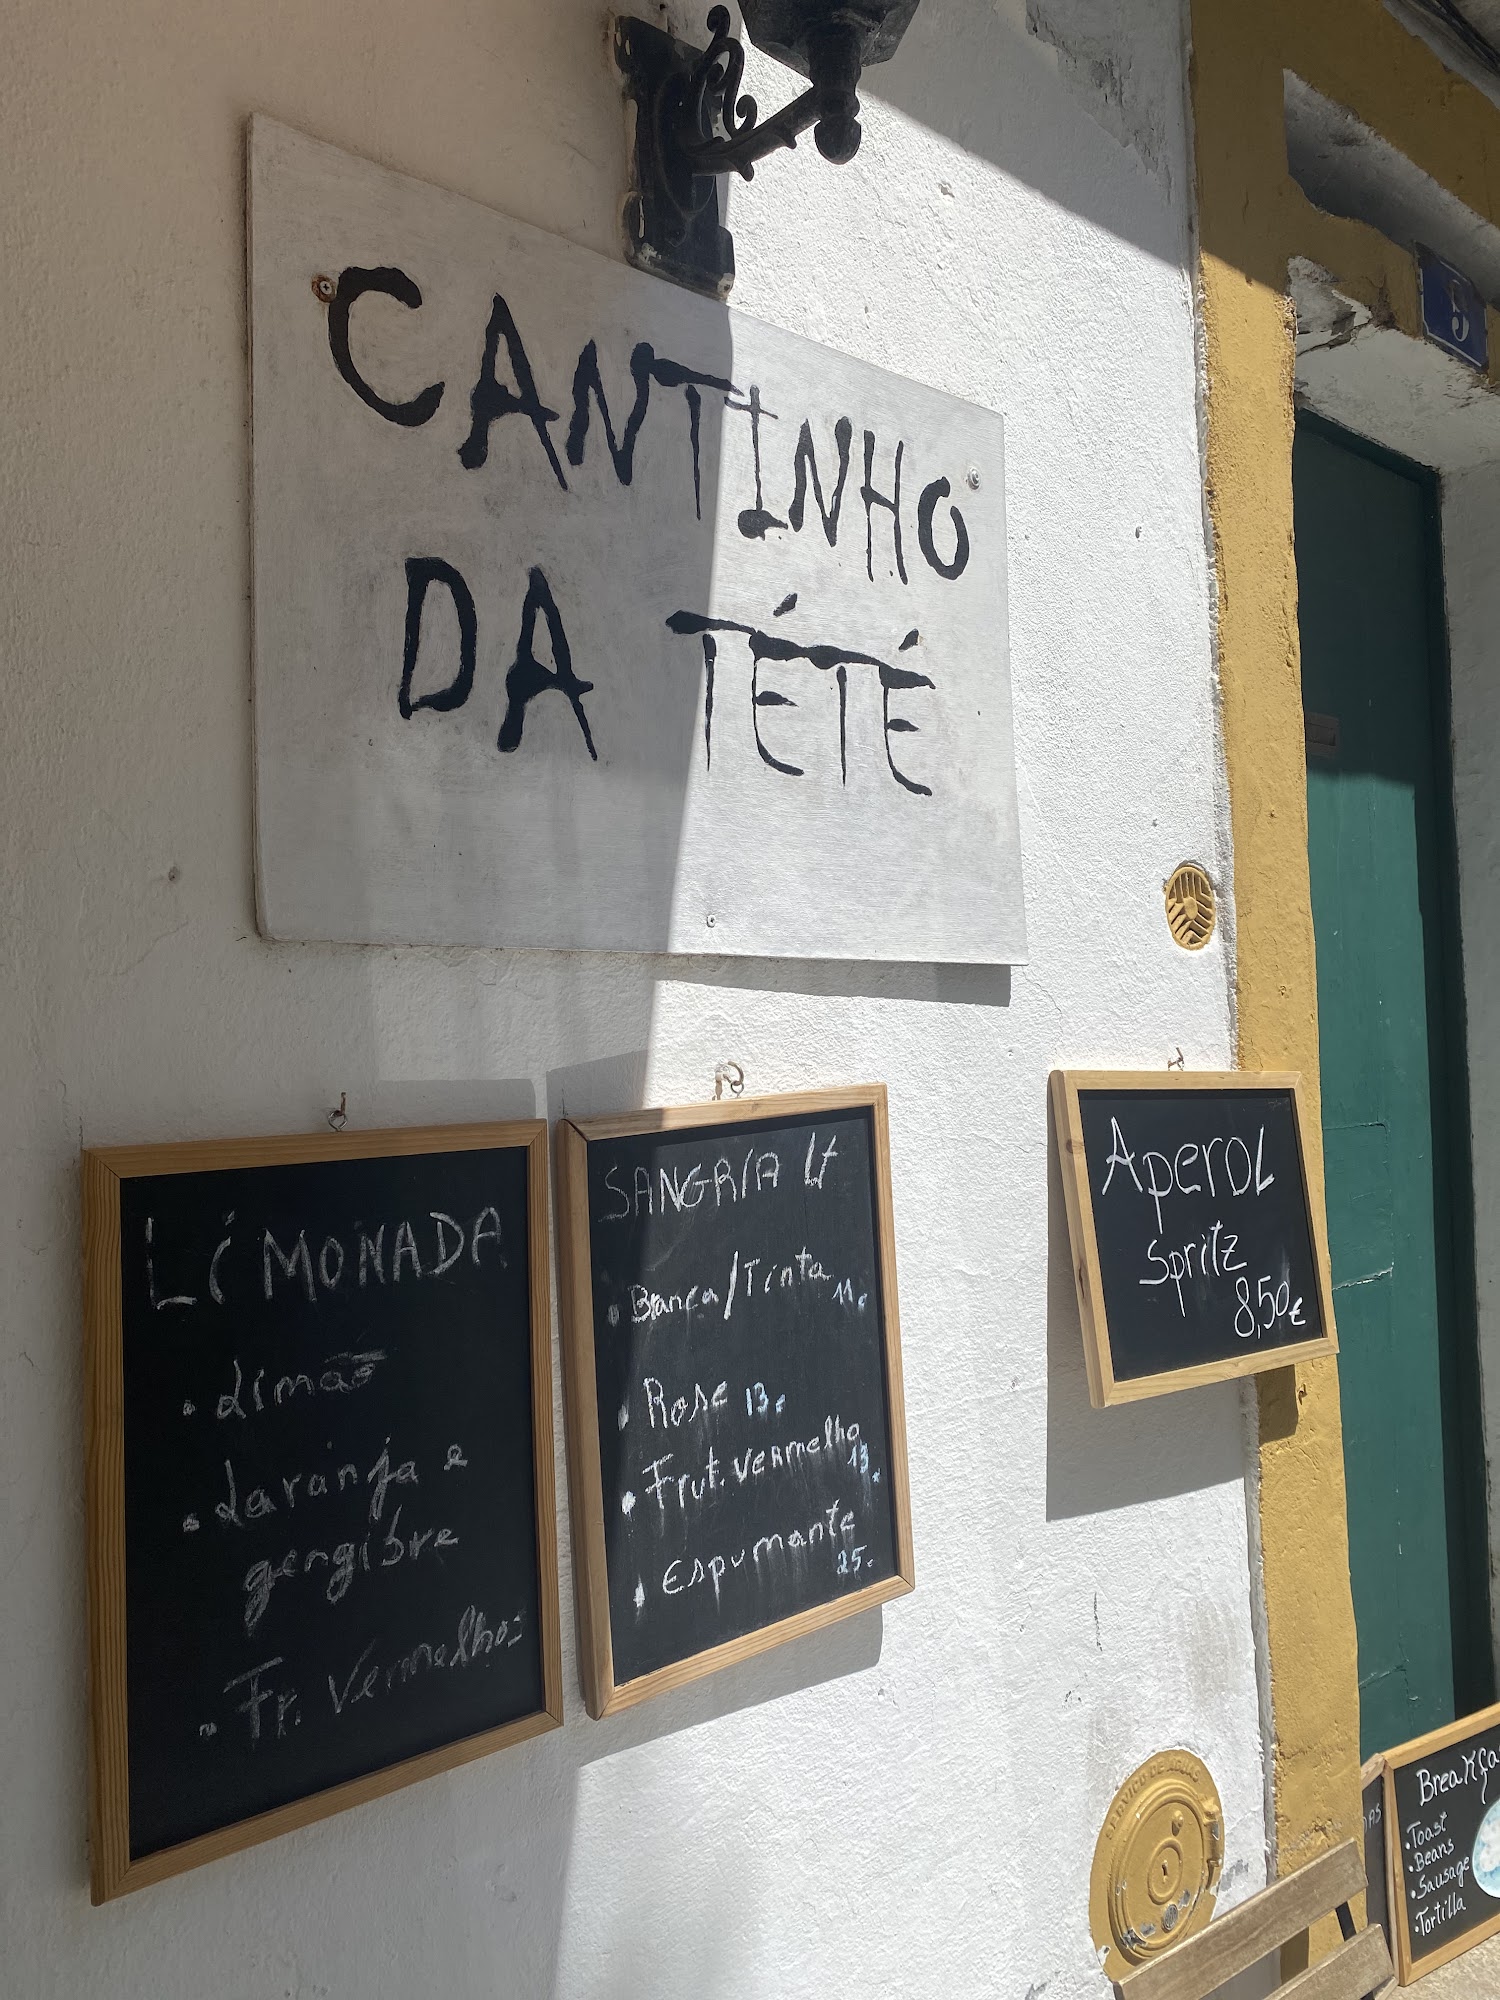 CANTINHO
DA TÉTÉ
5
LiMONADA
• Limão
• Laranja e
gengibre
• Fr. Vermelhos
SANGRIA Lt
• Branca/Tinta 11€
• Rose 13€
• Frut. Vermelho 13€
• Espumante 25€
Aperol
Spritz
8,50€
SERVIÇO DE AGUAS
Breakfa
• Toast
• Beans
• Sausage
• Tortilla